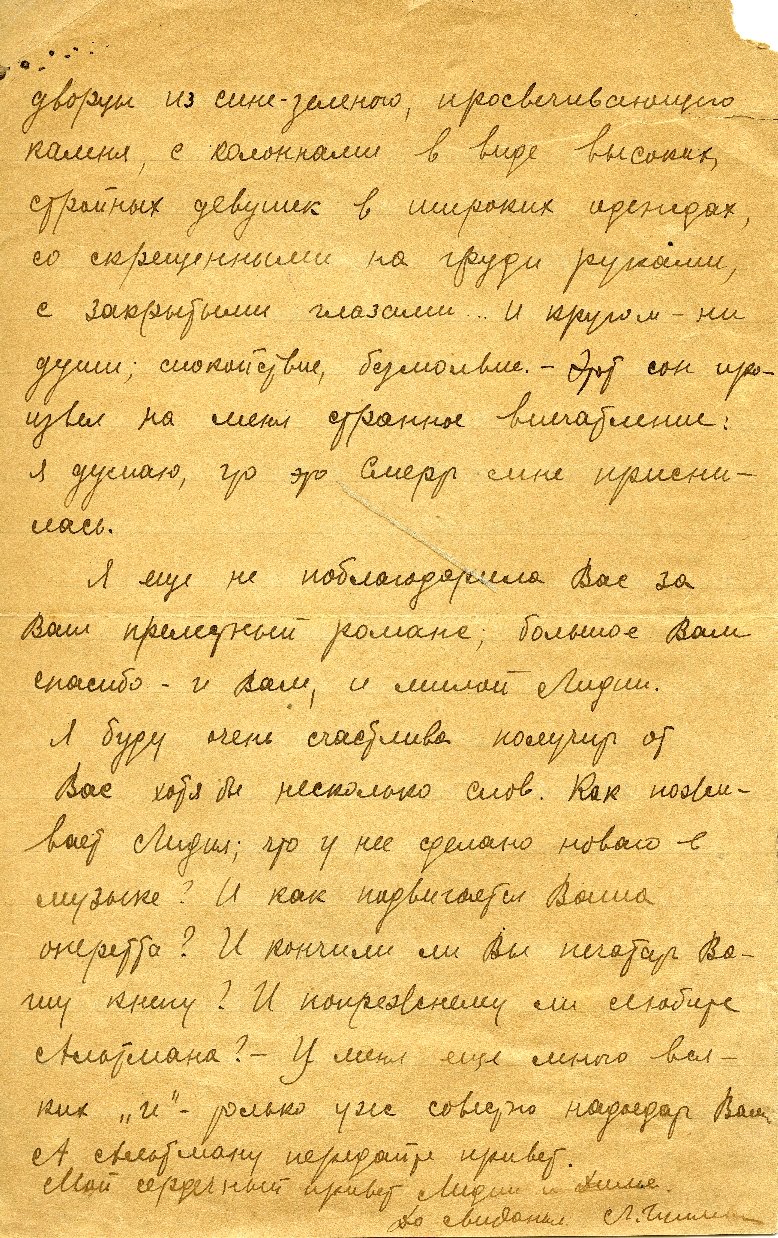 дворцы из сине-зеленого, просвечивающего
камня, с колоннами в виде высоких,
стройных девушек в широких одеждах,
со скрещенными на груди руками,
с закрытыми глазами... И кругом - ни
души; спокойствие, безмолвие. - Этот сон про-
извел на меня странное впечатление:
я думаю, что это Смерть мне присни-
лась.
Я еще не поблагодарила Вас за
Ваш прелестный романс; большое Вам
спасибо - и Вам, и милой Лидии.
Я буду очень счастлива получить от
Вас хотя бы несколько слов. Как пожи-
вает Лидия; что у нее сделано нового в
музыке? И как подвигается Ваша
оперетта? И кончили ли Вы печатать Ва-
шу книгу? И попрежнему ли любите
Альтмана? - У меня еще много вся-
ких „и" - только уже совестно надоедать Вам
А Альтману передайте привет.
Мой сердечный привет Лидии и
До свиданья Л.